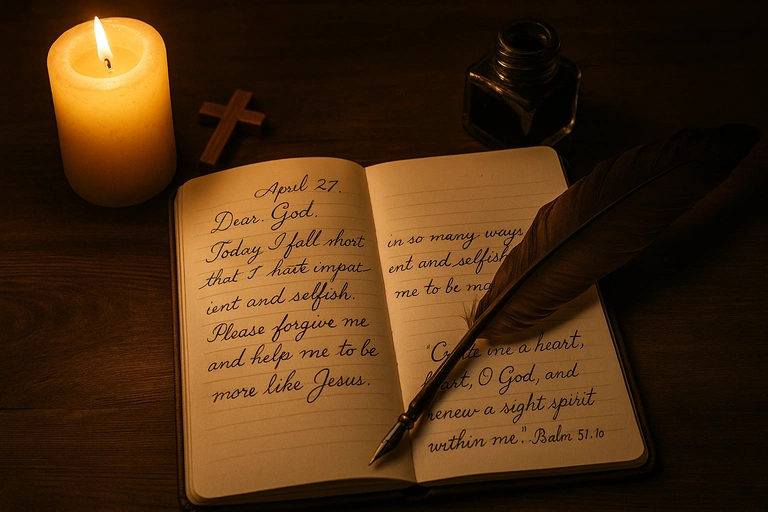 April 27.
Dear. God.
Today I fall short
that I impat
ient and selfish.
Please forgive me
and help me to be
more like Jesus.
in so many ways
ent and selfish
me to be
me a heart,
O God, and
renew a sight spirit
within me." Balm 51.10